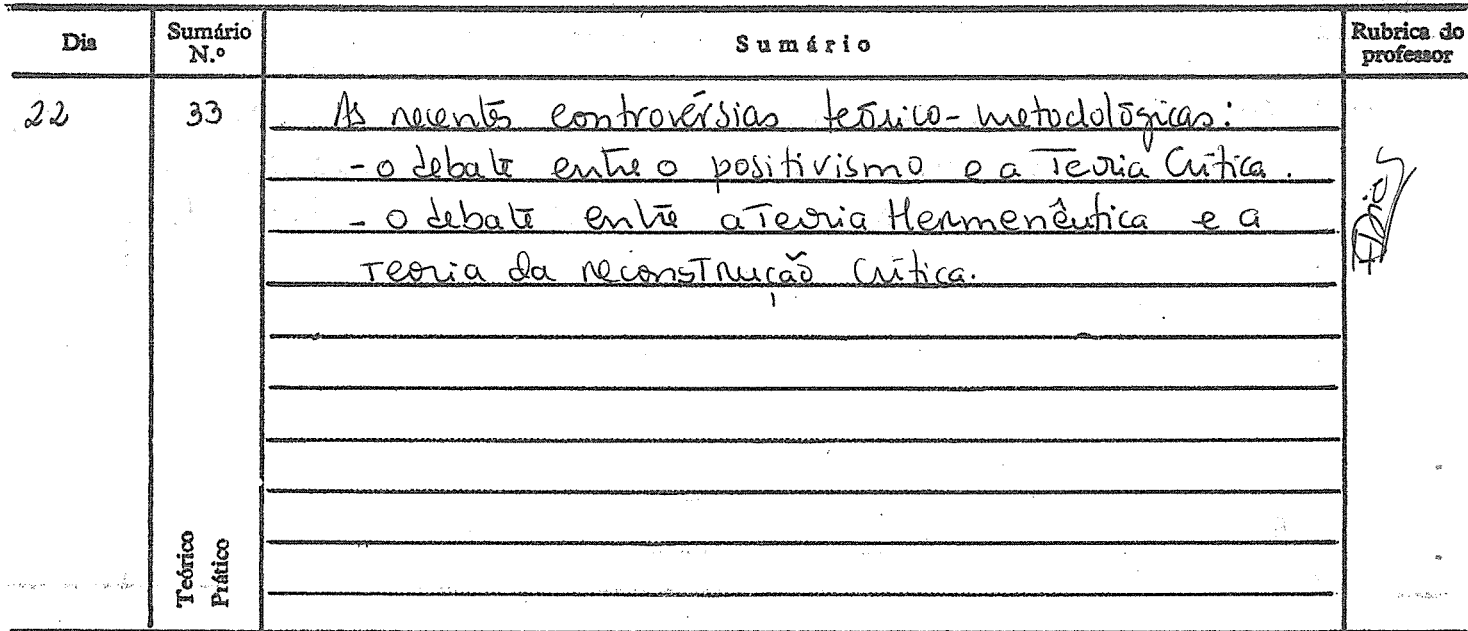 Dia Sumário N.º Sumário Rubrica do professor
22 33 As recentes controvérsias teórico-metodológicas:
- o debate entre o positivismo e a Teoria Crítica.
- o debate entre a Teoria Hermenêutica e a
Teoria da reconstrução Crítica.
Teórico
Prático